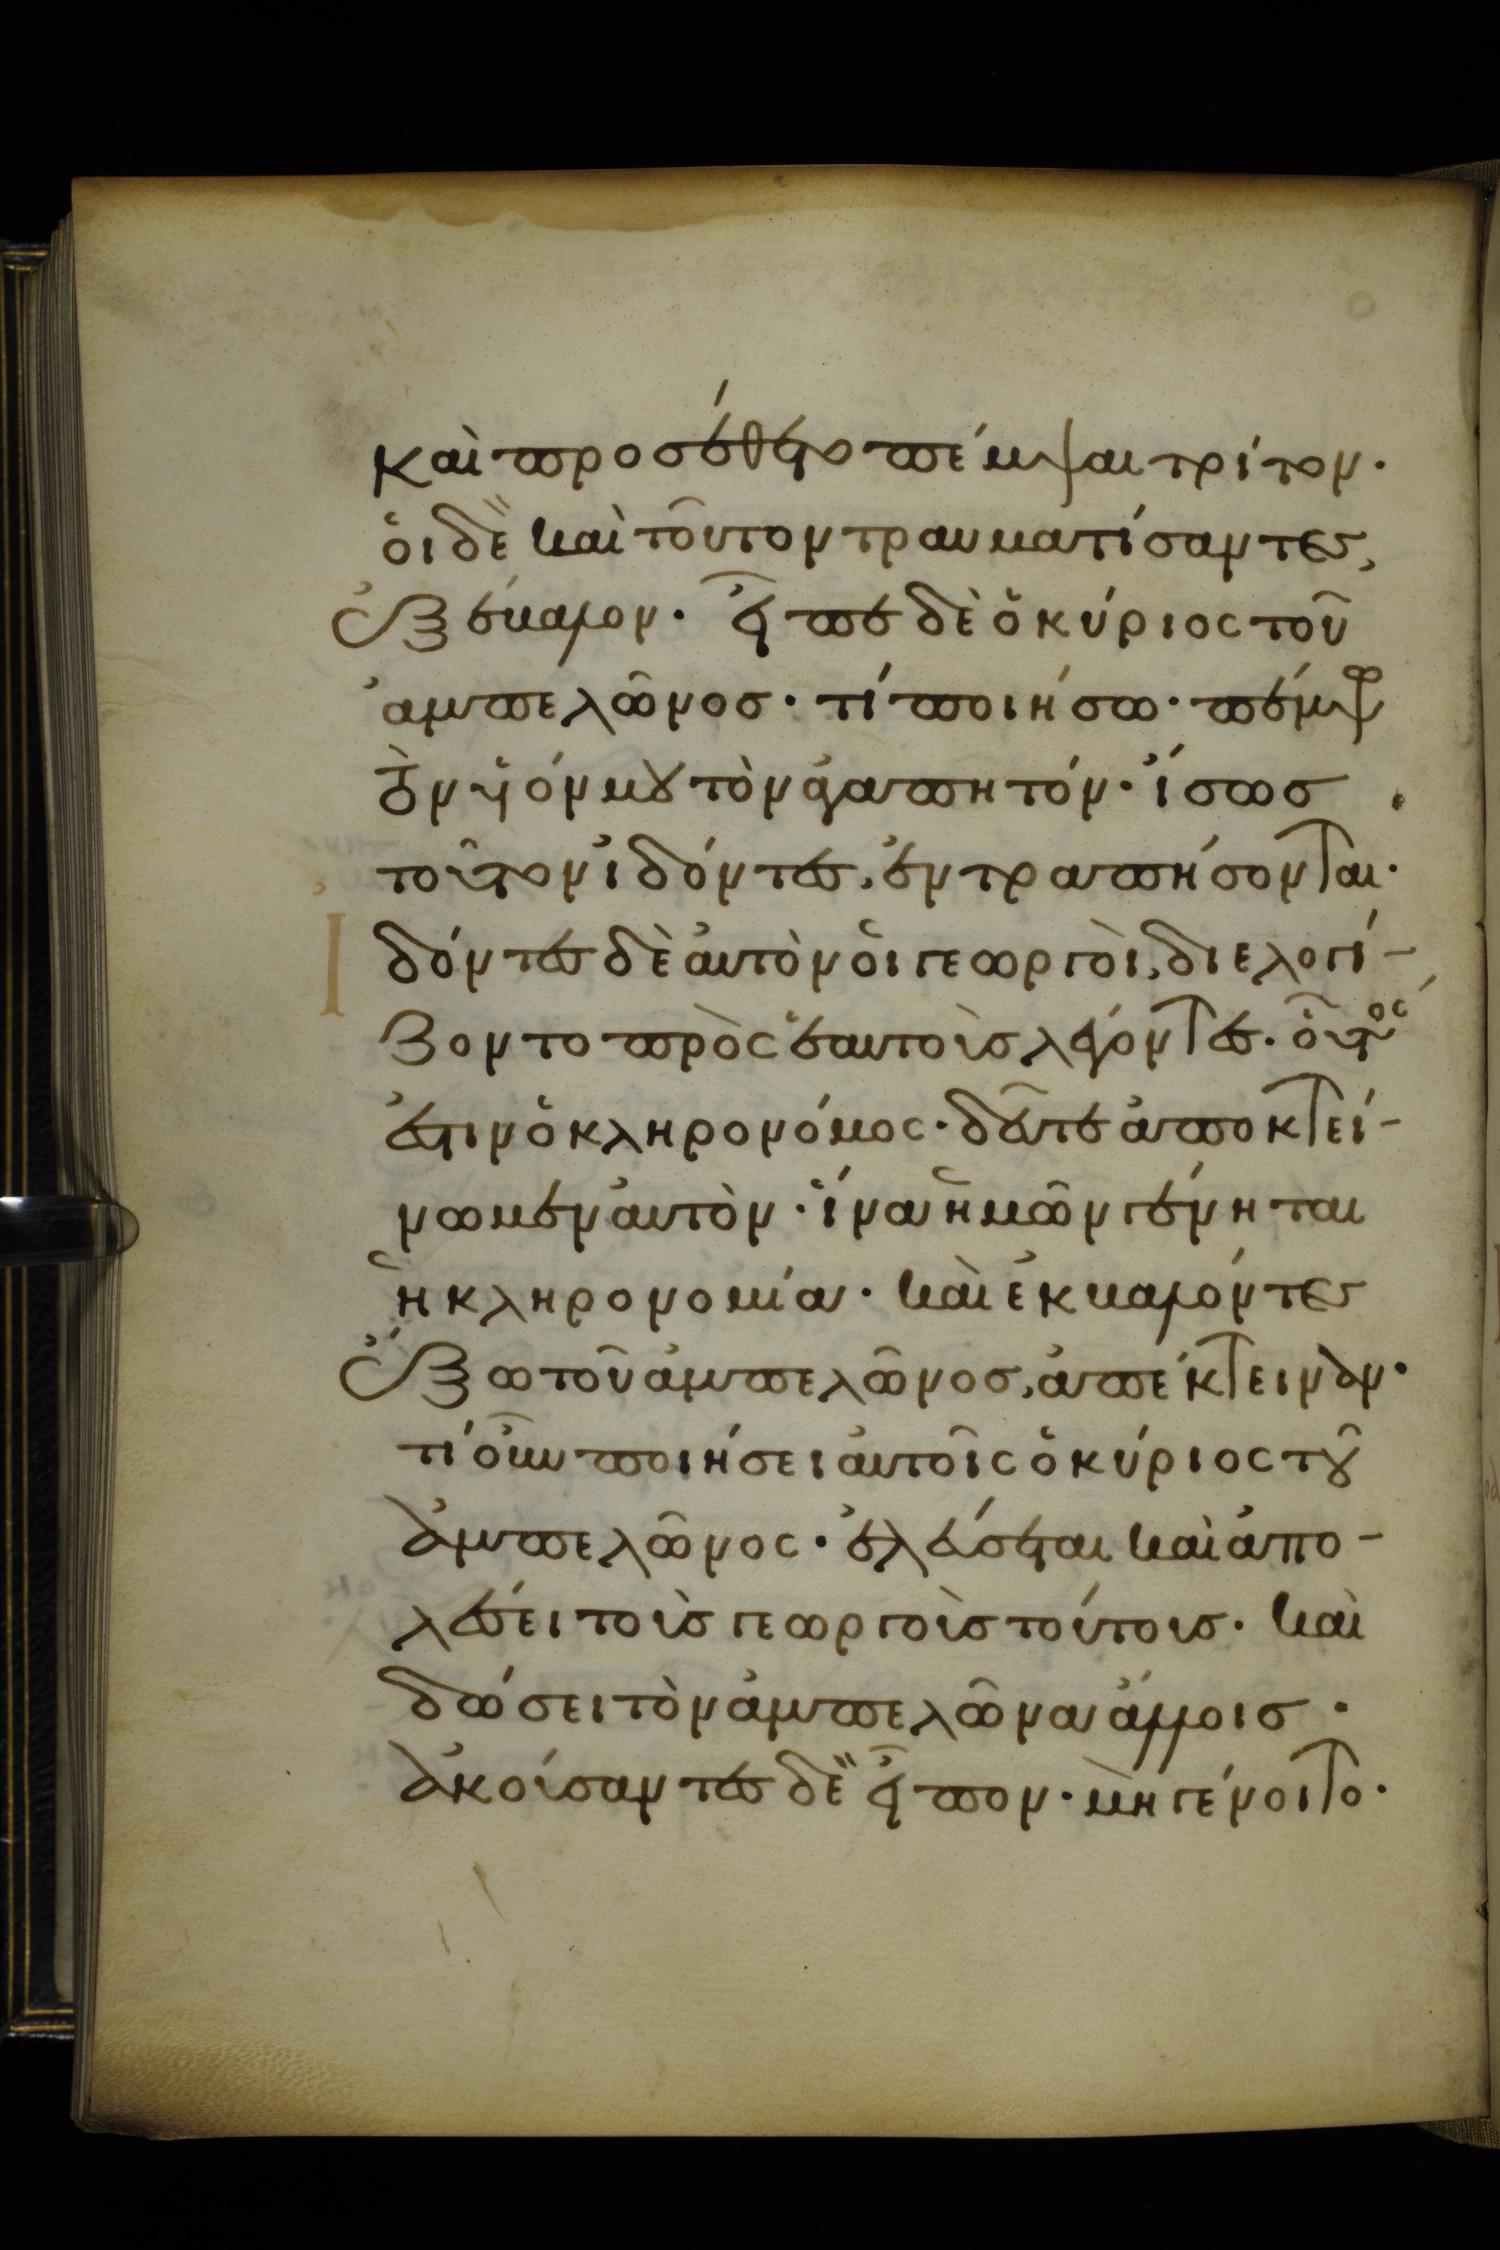 καὶ προσέθετο πέμψαι τρίτον·
ὁι δὲ καὶ τοῦτον τραυματίσαντες,
ἐξέβαλον· εἶπε δὲ ὁ κύριος τοῦ
ἀμπελῶνος· τί ποιήσω· πέμψω
τὸν ὑιόν μου τὸν ἀγαπητόν· ἴσως
τοῦτον ἰδόντες, ἐντραπήσονται·
Ἰδόντες δὲ ἀυτὸν ὁι γεωργοὶ, διελογί-
ζοντο πρὸς ἑαυτοὺς λέγοντες· οὗτός
ἐστιν ὁ κληρονόμος· δεῦτε ἀποκτεί-
νωμεν ἀυτὸν· ἵνα ἡμῶν γένηται
ἡ κληρονομία· καὶ ἐκβαλόντες
ἔξω τοῦ ἀμπελῶνος, ἀπέκτειναν·
τί οὖν ποιήσει ἀυτοῖς ὁ κύριος τοῦ
ἀμπελῶνος· ἐλεύσεται καὶ ἀπο-
λέσει τοὺς γεωργοὺς τούτους· καὶ
δώσει τὸν ἀμπελῶνα ἄλλοις·
ἀκούσαντες δὲ εἶπον· μὴ γένοιτο·